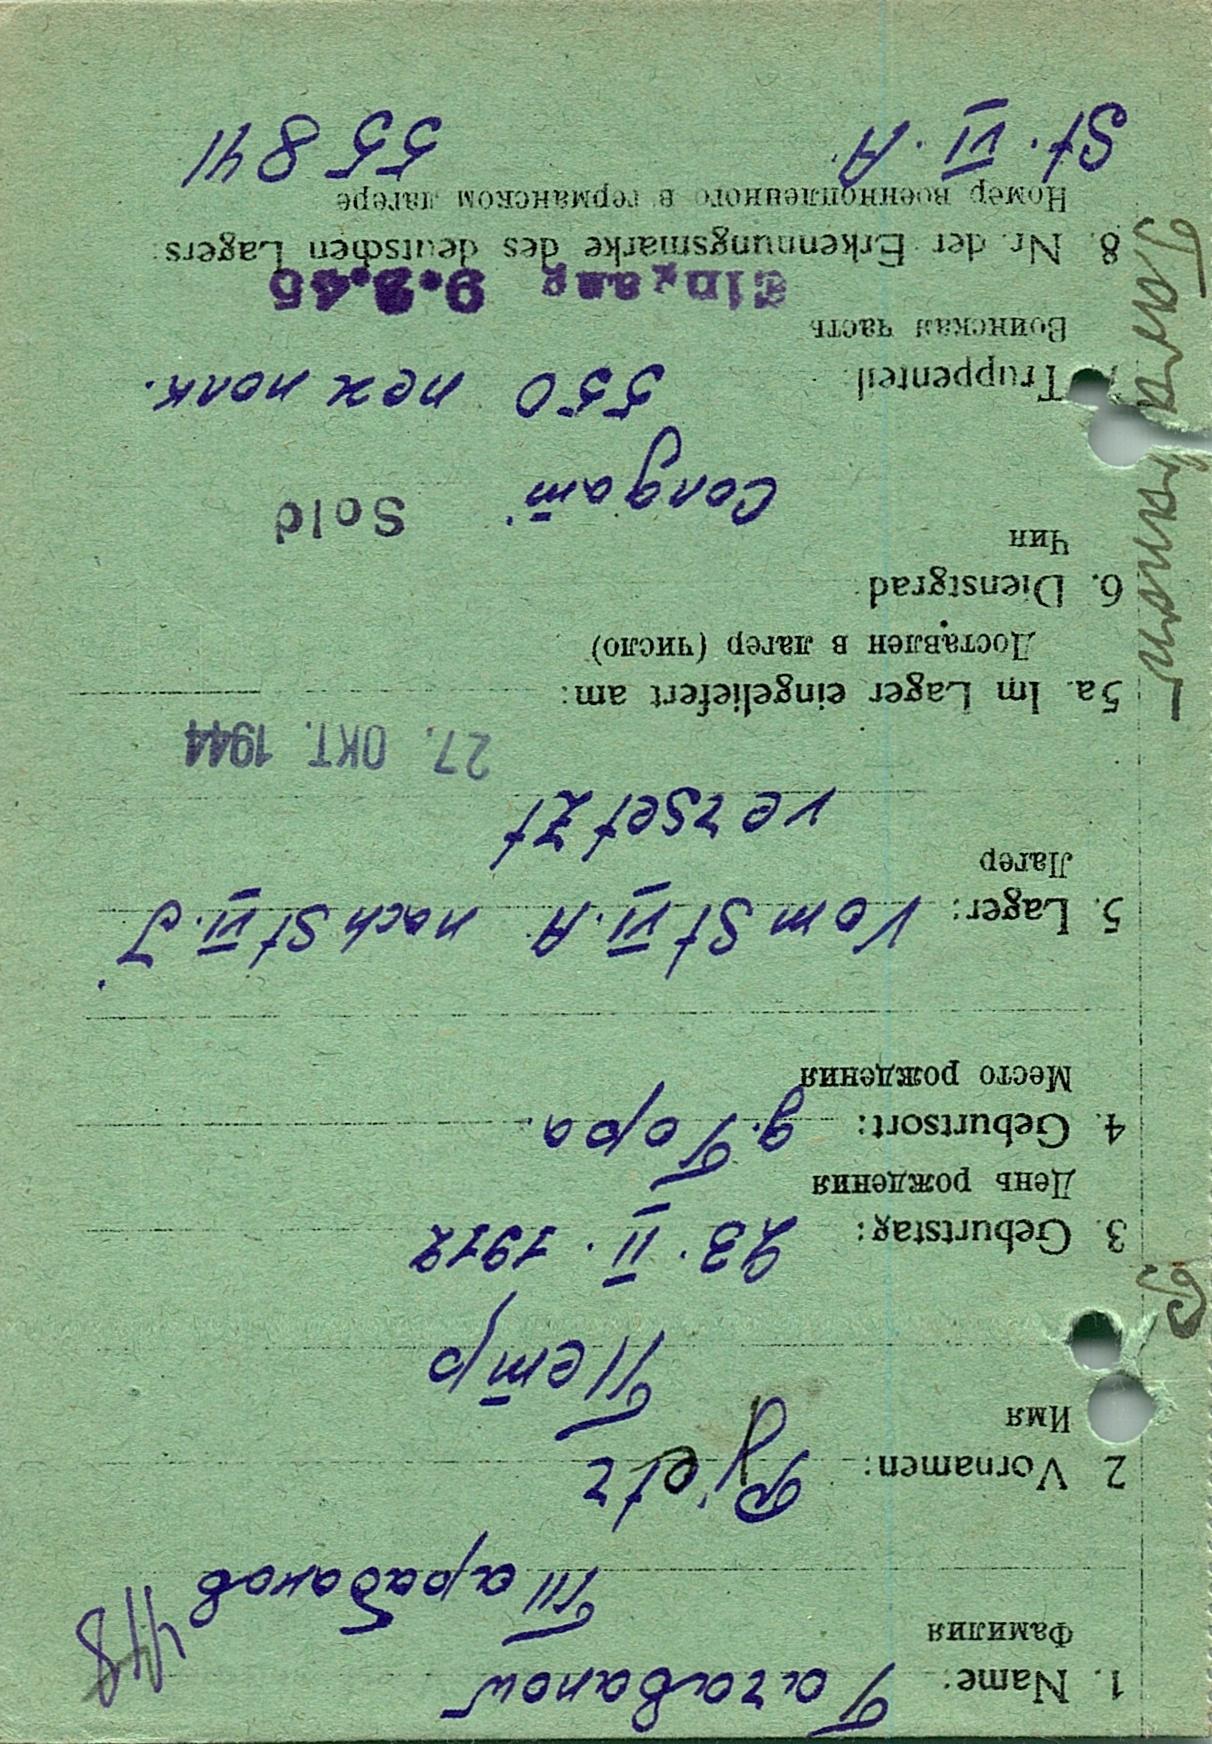 448
1. Name: Tarabanow
Фамилия Тарабанов
2 Vornamen: Pjetr
Имя Петр
3. Geburtstag: 23. II. 1912
День рождения
4. Geburtsort: д. Гора.
Место рождения
5. Lager: Vom St VI. A. nach St VI. J.
Лагер versetzt
27. OKT. 1944
5a. Im Lager eingeliefert am:
Доставлен в лагер (число)
6. Dienstgrad
Чин Солдат. Sold
Truppenteil 550 пех полк.
Воинская часть
Eingang 9.3.45
8. Nr. der Erkennungsmarke des deutschen Lagers
Номер военнопленного в германском лагере
St. VI. A. 55841
P. Tarabanow